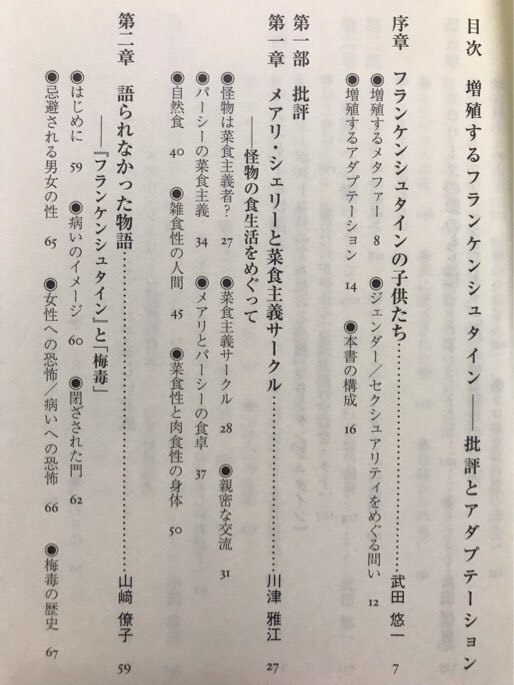 目次 増殖するフランケンシュタイン――批評とアダプテーション
序章 フランケンシュタインの子供たち…………………………武田 悠一 7
◉増殖するメタファー 8 ◉ジェンダー/セクシュアリティをめぐる問い 12
◉増殖するアダプテーション 14 ◉本書の構成 16
第一部 批評
第一章 メアリ・シェリーと菜食主義サークル…………………………川津 雅江 27
――怪物の食生活をめぐって
◉怪物は菜食主義者? 27 ◉菜食主義サークル 28 ◉親密な交流 31
◉パーシーの菜食主義 34 ◉メアリとパーシーの食卓 37
◉自然食 40 ◉雑食性の人間 45 ◉菜食性と肉食性の身体 50
第二章 語られなかった物語…………………………山﨑 僚子 59
――『フランケンシュタイン』と「梅毒」
◉はじめに 59 ◉病いのイメージ 60 ◉閉ざされた門 62
◉忌避される男女の性 65 ◉女性への恐怖/病いへの恐怖 66 ◉梅毒の歴史 67